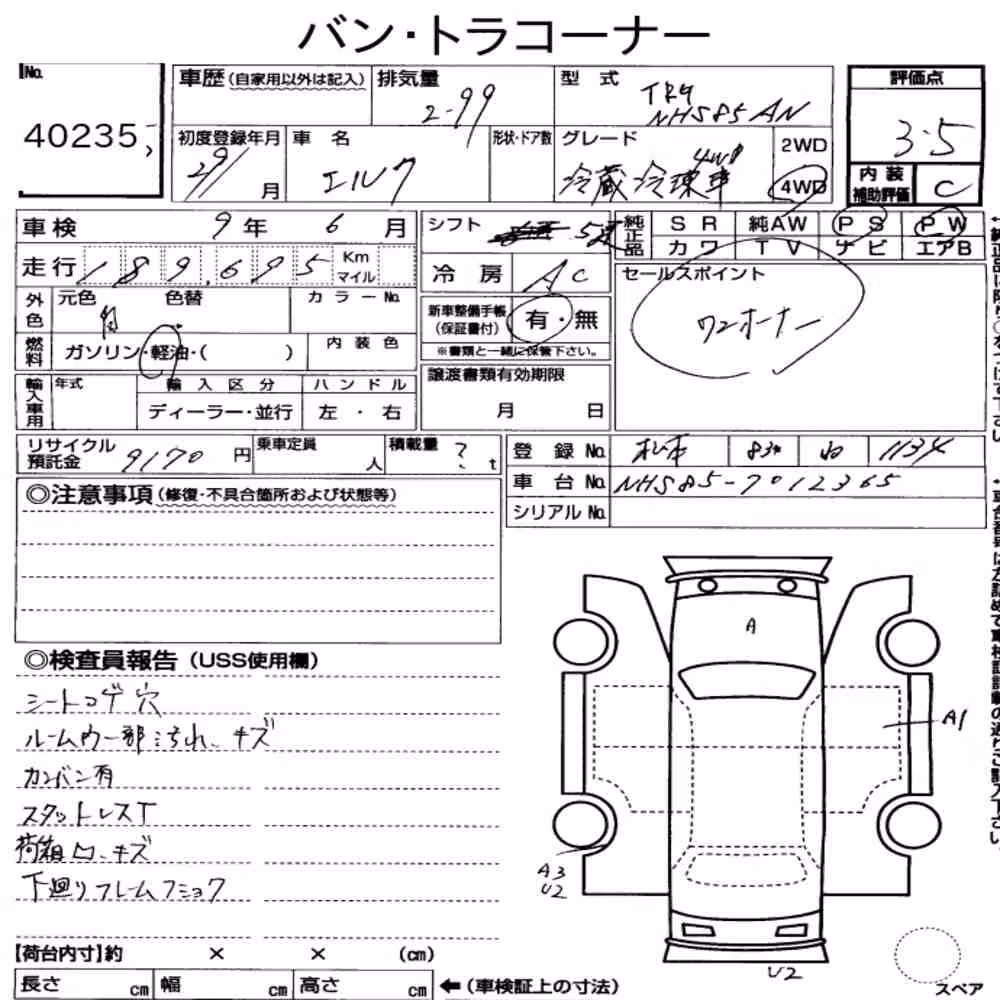 バン・トラコーナー
No.
40235
車歴 (自家用以外は記入)
排気量
2-99
型 式
TRG
NHS85AN
評価点
3.5
初度登録年月
29/ 月
車 名
エルフ
形状・ドア数
グレード
4WD
冷蔵冷凍車
2WD
4WD
内 装
補助評価
C
車検 9年 6月
シフト 5速
純正品
SR 純AW PS PW
カワ TV ナビ エアB
走行 189.695 Km マイル
冷 房 AC
セールスポイント
ワンオーナー
外色 元色 白 色替 カラーNo.
新車整備手帳
(保証書付)
有・無
※書類と一緒に保管下さい。
燃料 ガソリン・軽油・( ) 内装色
輸入車用 年式 輸 入 区 分 ハ ン ド ル
ディーラー・並行 左 ・ 右
譲渡書類有効期限
月 日
リサイクル
預託金 9170円
乗車定員 人
積載量 ? t
登 録 No. 松本 830 1134
車 台 No. NHS85-7012365
シリアル No.
◎注意事項 (修復・不具合箇所および状態等)
◎検査員報告 (USS使用欄)
シートコゲ穴
ルーム内一部汚れ、キズ
カンバン有
スタットレスT
荷箱凹、キズ
下廻りフレームフショク
A
A1
A3
U2
U2
スペア
【荷台内寸】約 × × (cm)
長さ cm 幅 cm 高さ cm ←(車検証上の寸法)